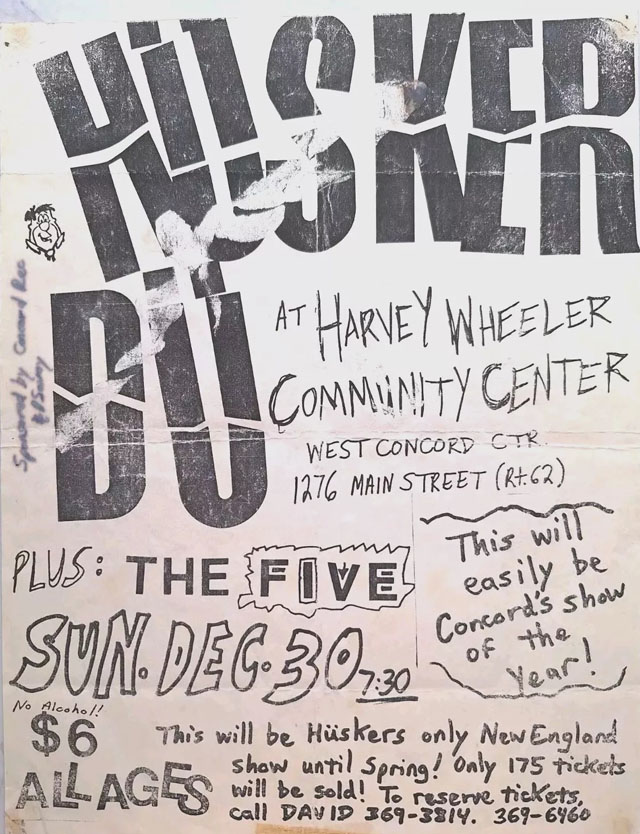 HÜSKER
DÜ
AT HARVEY WHEELER
COMMUNITY CENTER
WEST CONCORD CTR.
1276 MAIN STREET (Rt.62)
Sponsored by Concord Rec
PLUS: THE FIVE
This will
easily be
Concord's show
of the
Year!
SUN. DEC. 30 7:30
No Alcohol!
$6
ALL AGES
This will be Hüskers only New England
show until Spring! Only 175 tickets
will be sold! To reserve tickets,
call DAVID 369-3814. 369-6460